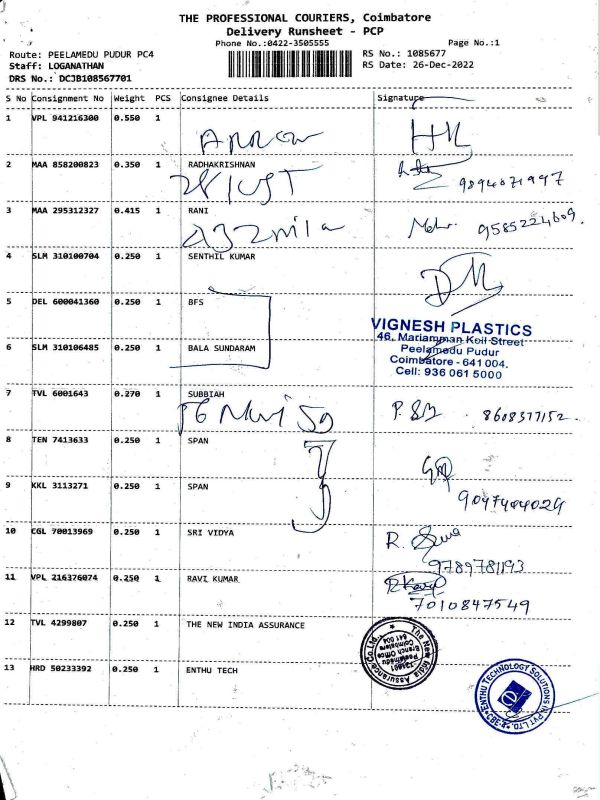 THE PROFESSIONAL COURIERS, Coimbatore
Delivery Runsheet - PCP
Phone No.:0422-3505555
Page No.:1
Route: PEELAMEDU PUDUR PC4
Staff: LOGANATHAN
DRS No.: DCJB108567701
RS No.: 1085677
RS Date: 26-Dec-2022
S No Consignment No Weight PCS Consignee Details Signature
1 VPL 941216300 0.550 1
ARROW
2 MAA 858200823 0.350 1 RADHAKRISHNAN
9894071997
3 MAA 295312327 0.415 1 RANI
9585224609.
4 SLM 310100704 0.250 1 SENTHIL KUMAR
5 DEL 600041360 0.250 1 BFS
VIGNESH PLASTICS
46, Mariamman Koil Street
6 SLM 310106485 0.250 1 BALA SUNDARAM
Peelamedu Pudur
Coimbatore - 641 004.
Cell: 936 061 5000
7 TVL 6001643 0.270 1 SUBBIAH
8608377152.
8 TEN 7413633 0.250 1 SPAN
9 KKL 3113271 0.250 1 SPAN
9047404029
10 CGL 70013969 0.250 1 SRI VIDYA
9789781193
11 VPL 216376074 0.250 1 RAVI KUMAR
7010847549
12 TVL 4299807 0.250 1 THE NEW INDIA ASSURANCE
The New India Assurance Co.Ltd.,
Branch Office
Peelamedu
Coimbatore
641 004
13 HRD 50233392 0.250 1 ENTHU TECH
ENTHU TECHNOLOGY SOLUTIONS (I) PVT LTD.